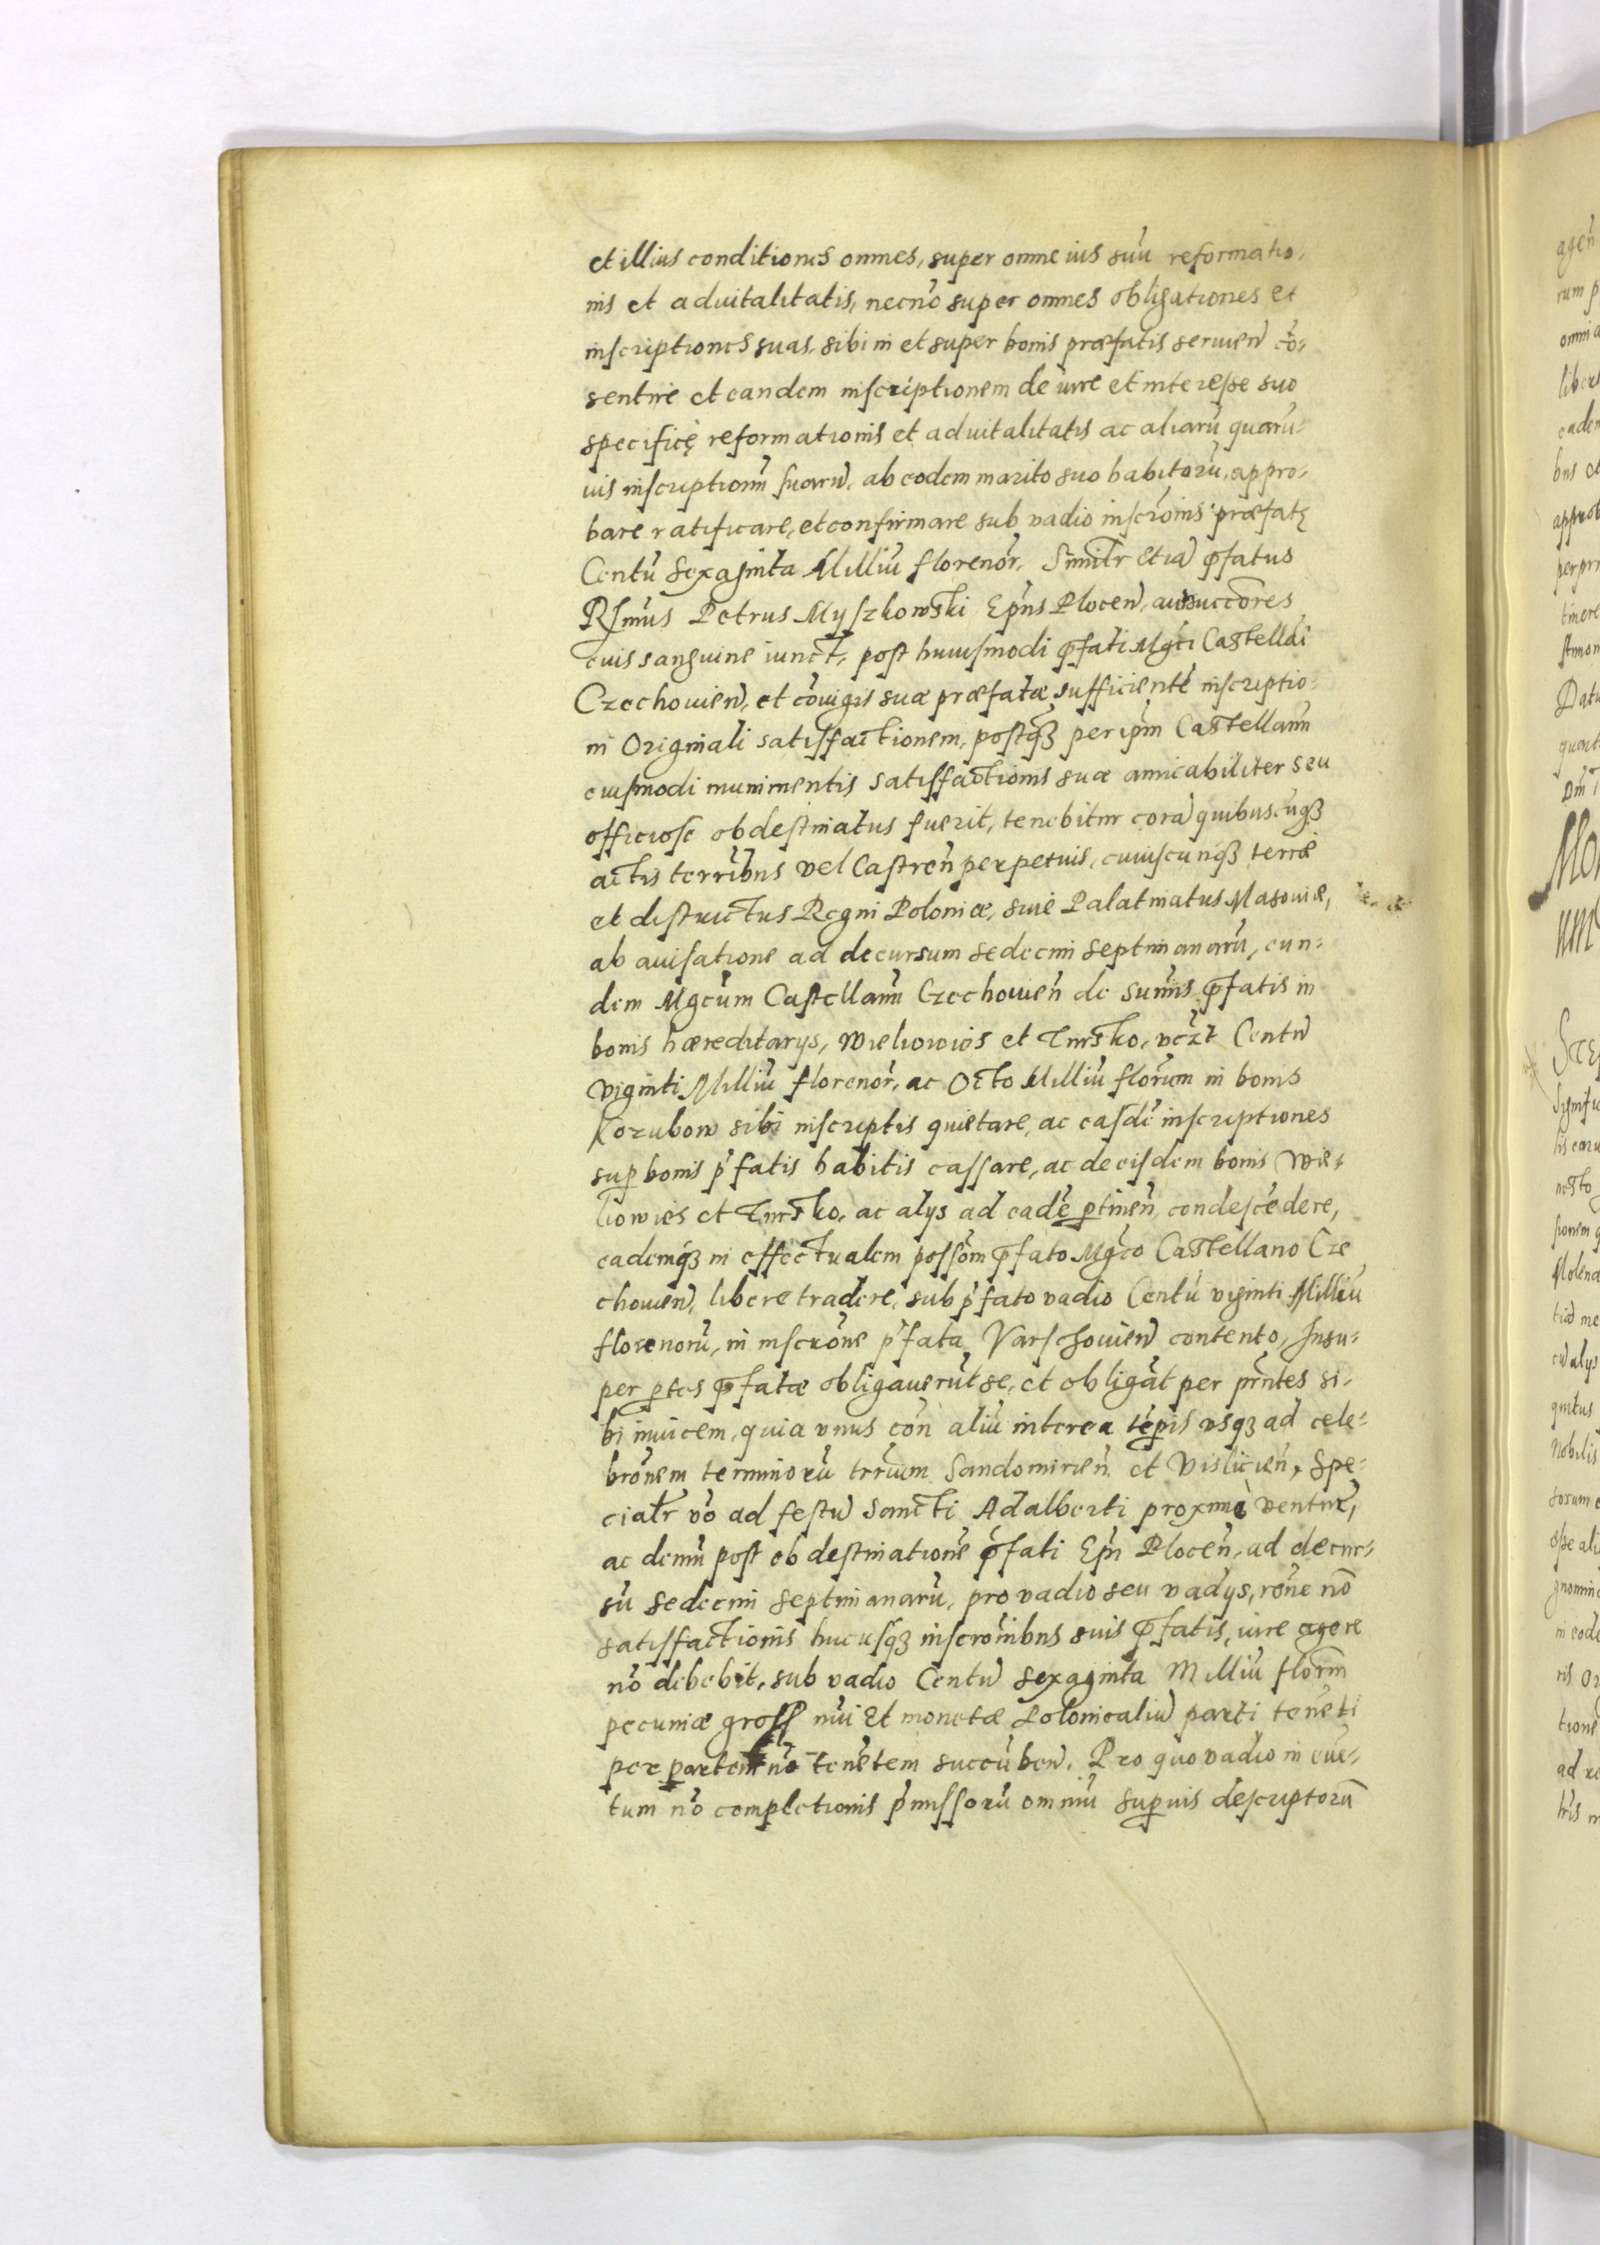 et illius conditiones omnes, super omne ius suũ reformatio,
nis et aduitalitatis, necnõ super omnes obligationes et
inscriptiones suas, sibi in et super bonis præfatis seruień cõ,
sentire et eandem inscriptionem de iure et interesse suo
specificę reformationis et aduitalitatis ac aliarũ quarũ-
uis inscriptionũ suarũ, ab eodem marito suo habitorũ, appro,
bare ratificare, et confirmare sub vadio inscrõinis præfatę
Centũ Sexaginta Milliũ florenor̃, Similr̃ etiã p̃fatus
Rs̃mus Petrus Myszkowski Ep̃ns Plocen̄, aut succõres
euis sanguine iunct̃, post huiusmodi p̃fati Mg̃ci Castellãi
Czechouien̄, et cõiugis suæ præfatæ sufficientẽ inscriptio-
ni Originali satisfactionem, postq̃ȝ per ip̃m Castellanũ
euismodi munimentis satisfactionis suæ amicabiliter seu
officiose obdestinatus fuerit, tenebitur corã quibuscũqȝ
actis terrr̃ibus vel Castreñ perpetuis, cuiuscunqȝ terræ
et districtus Regni Poloniæ, siue Palatinatus Masouiæ,
ab auisatione ad decursum sedecim septimanarũ, eun-
dem Mgcũm Castellanũ Czechouieñ de sum̃is p̃fatis in
bonis hæreditarijs, Wieliowies et Tursko, vcz̃t Centũ
viginti Milliũ florenor̃, ac Octo Milliũ florũm in bonis
Kozubow sibi inscriptis quietare, ac easdẽ inscriptiones
sup̱ bonis p̃fatis habitis cassare, ac de eisdem bonis Wie-
liowies et Tursko, ac alijs ad eadẽ p̱tineñ condescẽdere,
eademqȝ in effectualem possõm p̃fato Mg̃co Castellano Cze
chouien̄, libere tradere, sub p̃fato vadio Centũ viginti Milliũ
florenorũ, in inscrõne p̃fata Varschouien̄ contento, Insu-
per p̱tes p̃fatæ obligauerũt se, et obligãt per pr̃ntes si-
bi inuicem, quia vnus cõn aliũ interea tẽp̱is vsqȝ ad cele-
brõnem terminorũ trr̃ium Sandomirieñ et Vislicieñ, Spe-
cialr̃ võ ad festũ Sancti Adalberti proximè ventur̃,
ac demũ post obdestinationẽ p̃fati Ep̃i Ploceñ, ad decur-
sũ sedecim septimanarũ, pro vadio seu vadijs, rõne nõ
satisfactionis hucusqȝ inscrõnibus suis p̃fatis, iure agere
nõ debebit, sub vadio Centũ sexaginta Milliũ florũm
pecuniæ gross nũi et monetæ Polonicaliũ parti tenẽti
per partem nõ tenẽtem succũben̄. Pro quo vadio in euẽ-
tum nõ completionis p̃missorũ omniũ superius descriptorũ